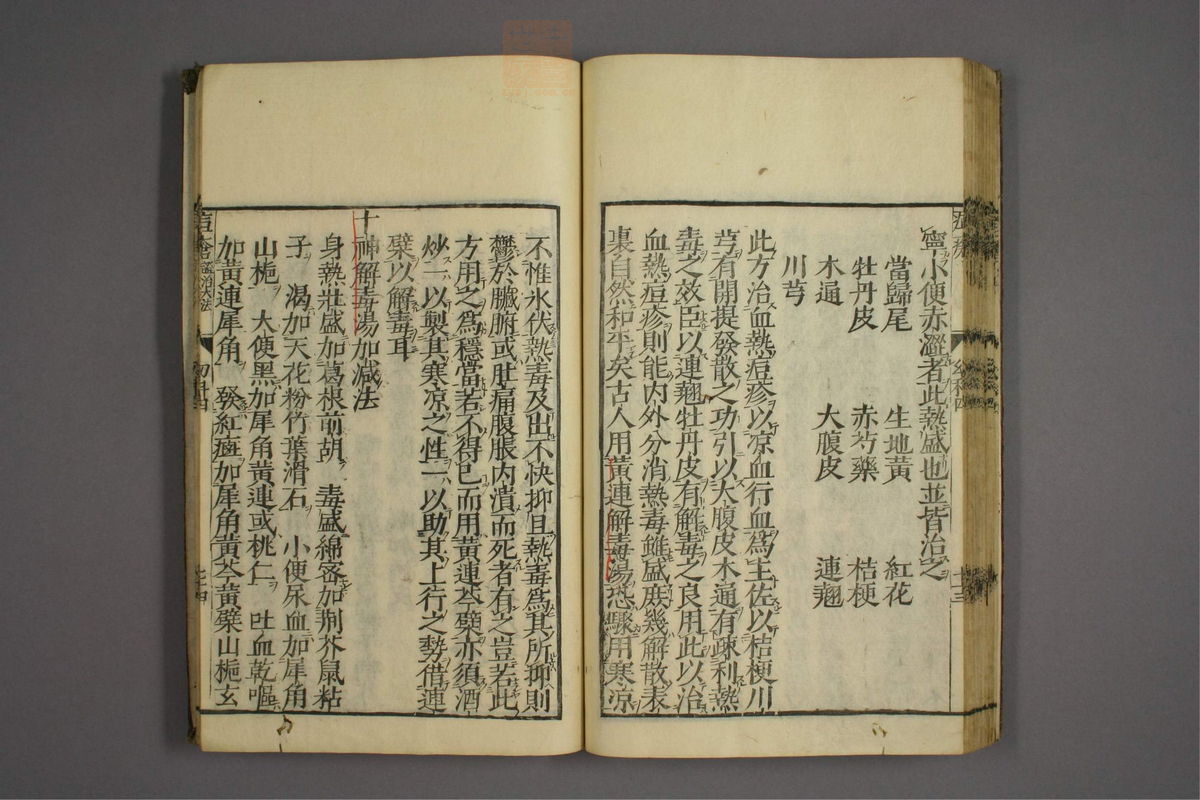 寧小便赤澀者此熱盛也並皆治之
當歸尾 生地黃 紅花
牡丹皮 赤芍藥 桔梗
木通 大腹皮 連翹
川芎
此方治血熱痘疹以凉血行血爲主佐以桔梗川
芎有開提發散之功引以大腹皮木通有疎利熱
毒之效臣以連翹牡丹皮有解毒之良用此以治
血熱痘疹則能内外分消熱毒雖盛庶幾解散表
裏自然和平矣古人用黃連解毒湯恐驟用寒凉
不惟氷伏熱毒及出不快抑且熱毒爲其所抑則
鬱於臟腑或肚痛腹脹内潰而死者有之豈若此
方用之爲穩當若不得已而用黃連芩蘗亦須酒
炒一以製其寒凉之性一以助其上行之勢借連
蘗以解毒耳
十神解毒湯加減法
身熱壯盛加葛根前胡 毒盛綿密加荆芥鼠粘
子 渴加天花粉竹葉滑石 小便尿血加犀角
山梔 大便黑加犀角黃連或桃仁 吐血乾嘔
加黃連犀角 發紅斑加犀角黃芩黃蘗山梔玄
幼科四
七十四